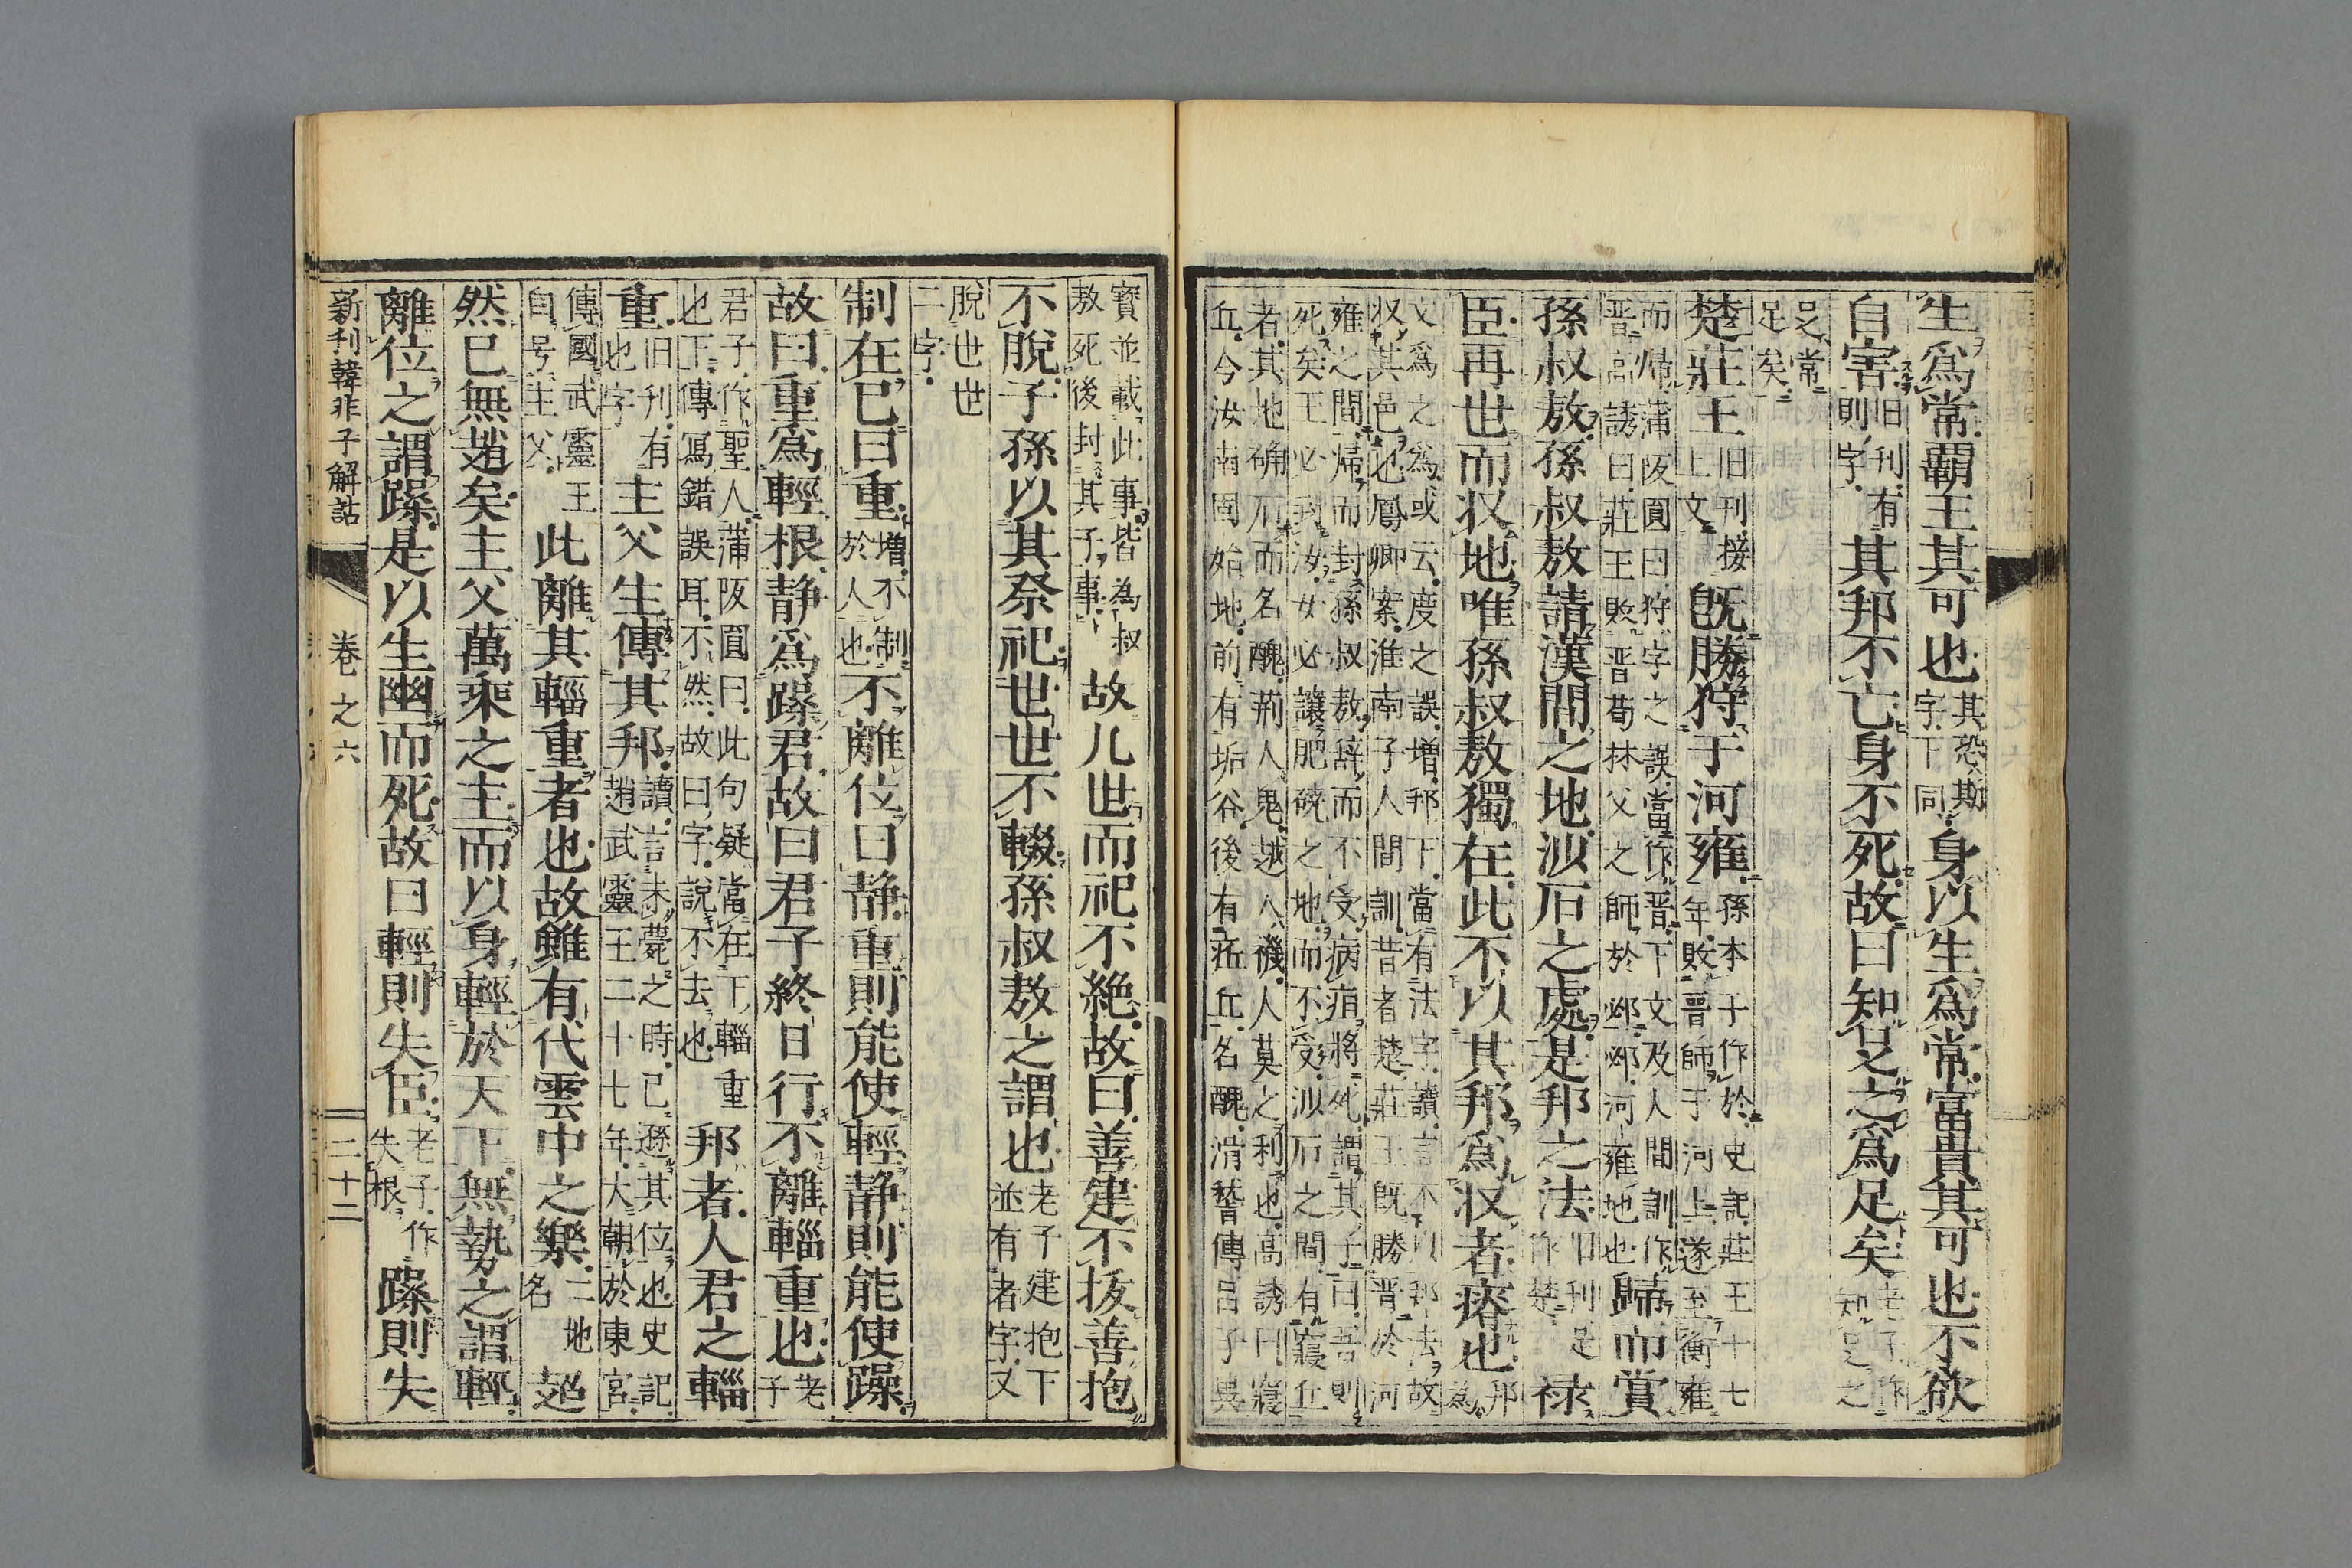 生爲常覇王其可也其恐斯字下同身以生爲常富貴其可也不欲
自害旧刊有則字其邦不亡身不死故曰知足之爲足矣老子作知足之
足常足矣
楚莊王旧刊接上文既勝狩于河雍孫本子作於史記莊王十七年敗晋師于河上遂至衡雍
而帰蒲阪圓曰狩字之誤當作晋下文及人間訓作晋高誘曰莊王敗晋荀林父之師於邲邲河雍地也歸而賞
孫叔敖孫叔敖請漢間之地沙石之處是邦之法旧刊是作楚禄
臣再世而収地唯孫叔敖獨在此不以其邦爲収者瘠也邦為
文爲之為或云度之誤増邦下當有法字讀言不以邦法故収其邑也鳳卿案淮南子人間訓昔者楚莊王既勝晋於河
雍之間帰而封孫叔敖辞而不受病疽將死謂其子曰吾則死矣王必封汝汝必讓肥磽之地而不受沙石之間有寢丘
者其地确石而名醜荊人鬼越人禨人莫之利也高誘曰寢丘今汝南固始地前有垢谷後有庄丘名醜滑稽傳呂子異
寳並載此事皆為叔敖死後封其子事故凡世而祀不絶故曰善建不抜善抱
不脫子孫以其祭祀世世不輟孫叔敖之謂也老子建抱下並有者字又
脫世世二字
制在已曰重増不制於人也不離位曰静重則能使輕静則能使躁
故曰重爲輕根静爲躁君故曰君子終日行不離輜重也老子
君子作聖人蒲阪圓曰此句疑當在下輜重也下傳寫錯誤耳不然故曰字說不去也邦者人君之輜
重旧刊有也字主父生傳其邦讀言未薨之時已遜其位也史記趙武靈王二十七年大朝於東宮
傳國武靈王自号主父此離其輜重者也故雖有代雲中之樂二地名趙
然已無趙矣主父萬乘之主而以身輕於天下無勢之謂輕
離位之謂躁是以生幽而死故曰輕則失臣老子作失根躁則失
新刊韓非子解詁
卷之六
二十二